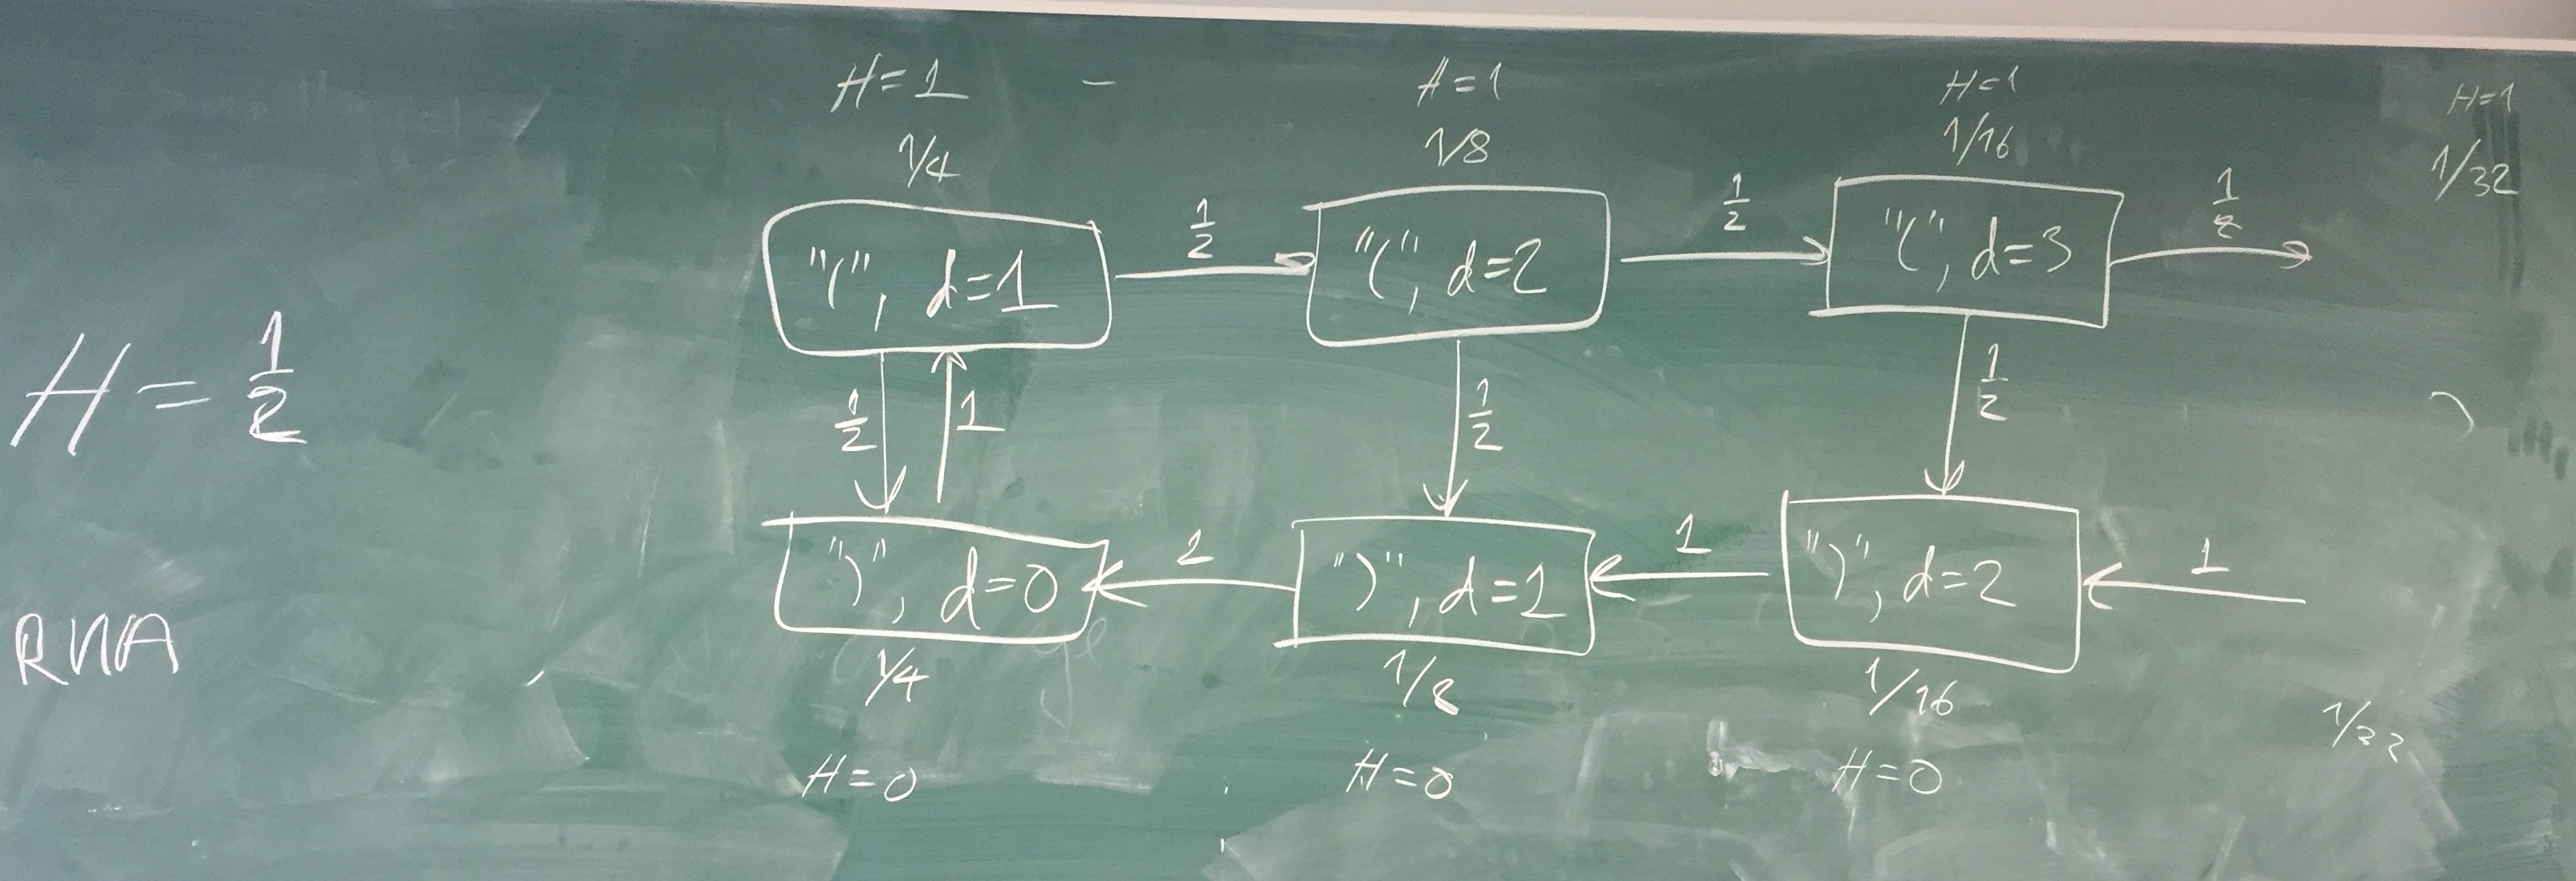 H=1 H=1 H=1 H=1
1/4 1/8 1/16 1/32
"(", d=1 1/2 "(", d=2 1/2 "(", d=3 1/2
H = 1/2
1/2 1 1/2 1/2
")", d=0 1 ")", d=1 1 ")", d=2 1
RNA
1/4 1/8 1/16 1/32
H=0 H=0 H=0